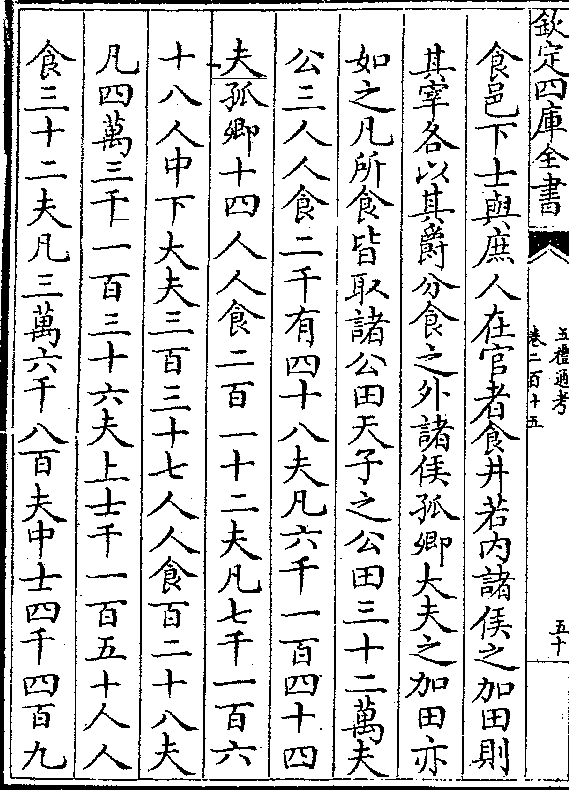 欽定四庫全書
五禮通考
卷二百十五
五十
食邑下士與庶人在官者食井若內諸侯之加田則
其宰各以其爵分食之外諸侯孤卿大夫之加田亦
如之凡所食皆取諸公田天子之公田三十二萬夫
公三人人食二千有四十八夫凡六千一百四十四
夫孤卿十四人人食二百一十二夫凡七千一百六
十八人中下大夫三百三十七人人食百二十八夫
凡四萬三千一百三十六夫上士千一百五十人人
食三十二夫凡三萬六千八百夫中士四千四百九